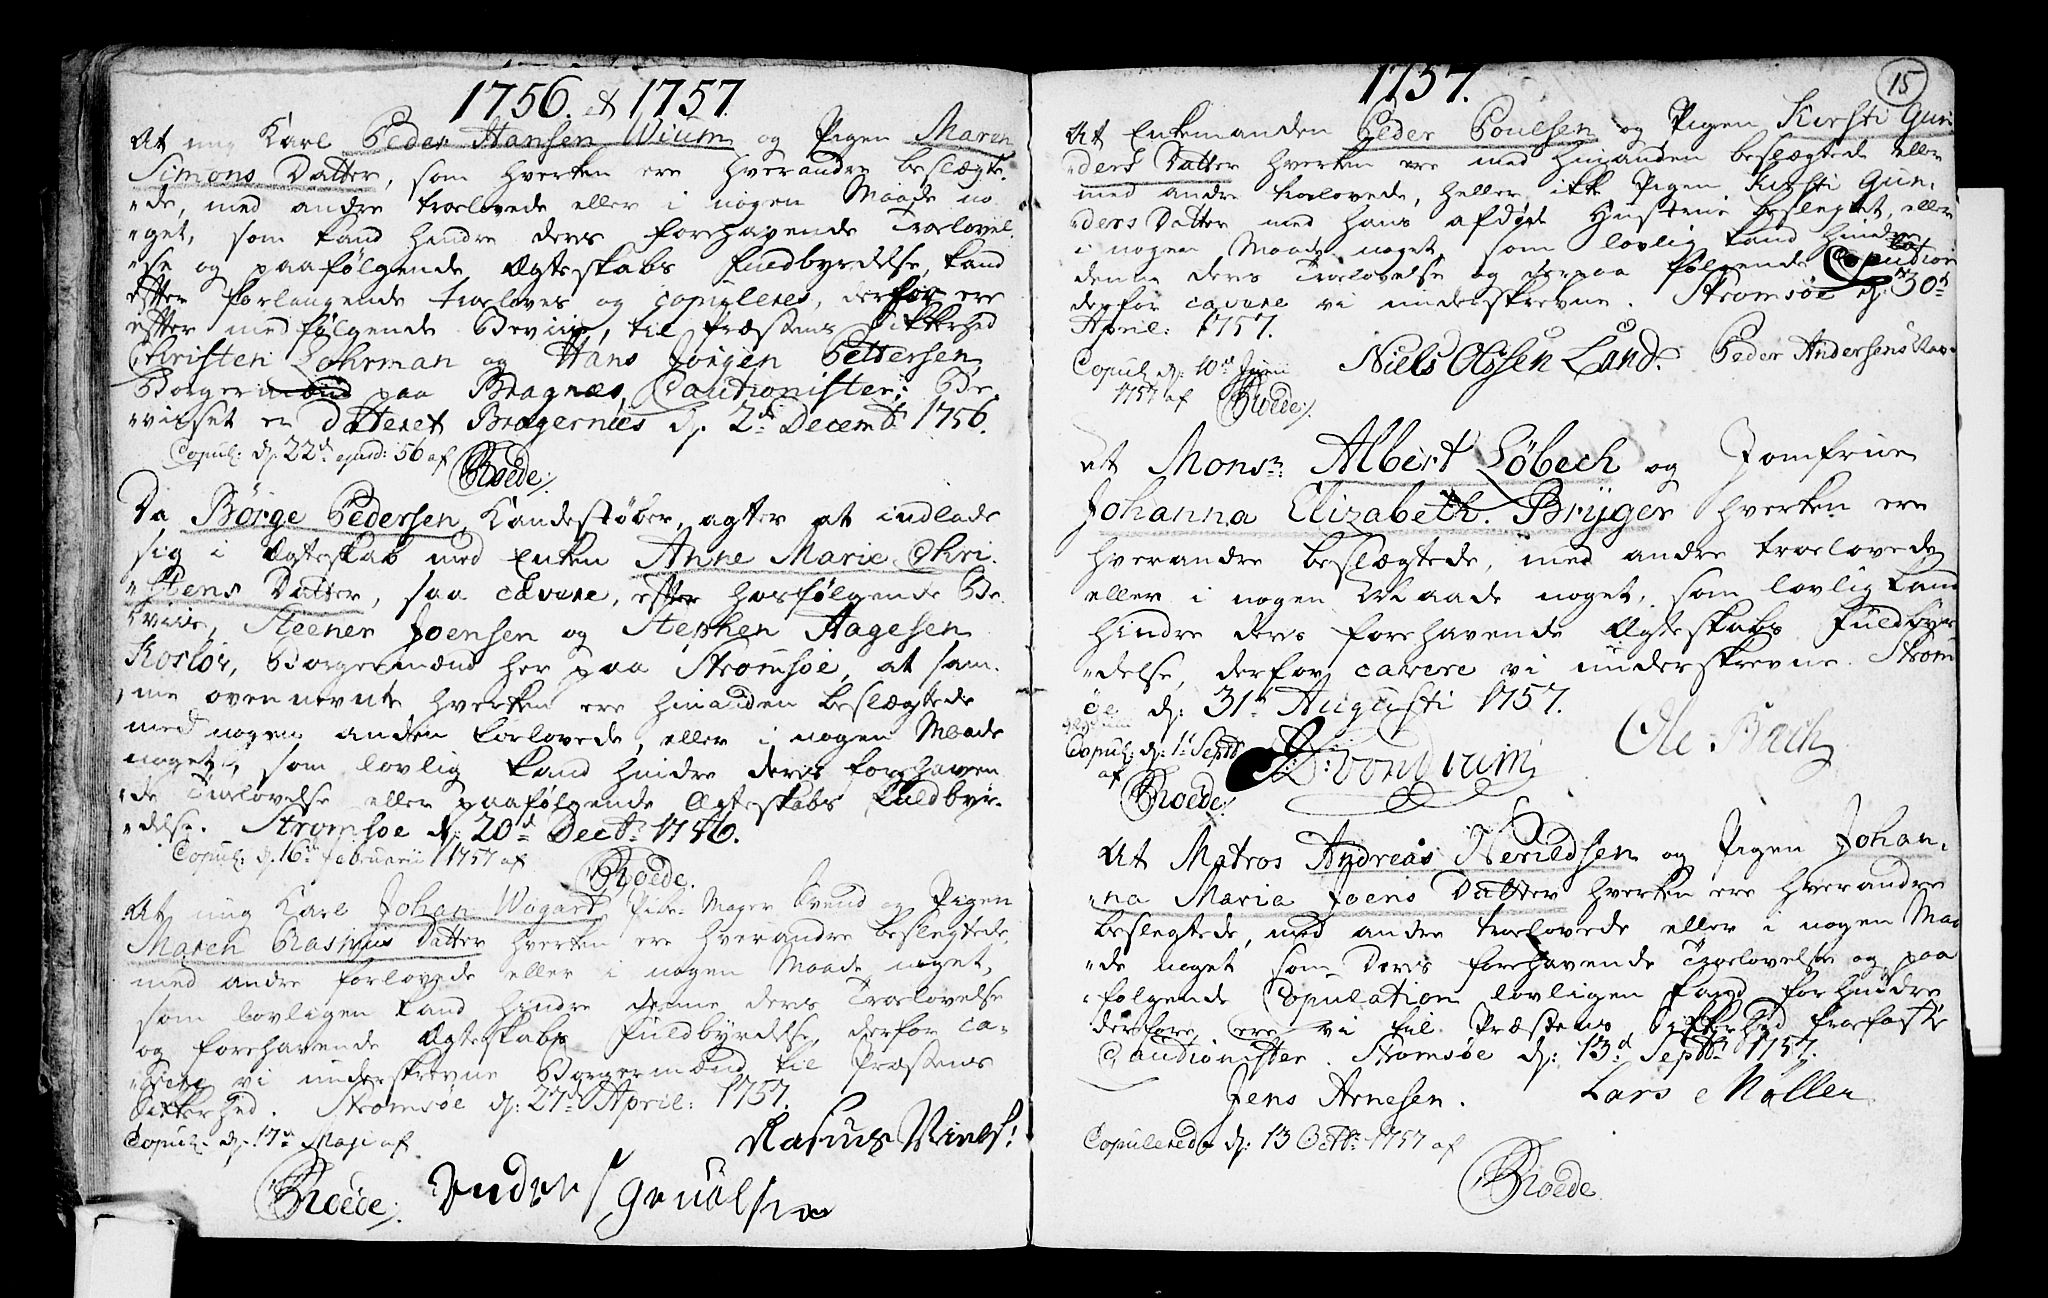 1756. et 1757.
At ung Karl Peder Hansen Wium og Pigen Maren
Simons Datter, som hverken ere hverandre beslægte,
"de, med andre troelovede eller i nogen Maade no
"get, som kand hindre deres forehavende Troelovel,
"se og paafølgende Ægteskabs fuldbyrdelse, kand
efter forlangende troeloves og copuleres, derfor ere
efter medfølgende Beviis, til Præstens Sikkerhed
Christen Lohrman og Hans Jørgen Pettersen
Borgermænd paa Bragnæs, Cautionister; Be,
"viiset er Dateret Bragernæs d. 2d Decembr 1756.
Copul: d. 22d ejusd: 56 af
Roede/.
Da Børge Pedersen, Kandestøber, agter at indlade
sig i Ægteskab med Enken Anne Marie Chri,
"stens Datter, saa cavere, efter hosfølgende Be,
"viis, Steener Joensen og Stephen Aagesen
Korløv, Borgermænd her paa Strømsøe, at sam,
"me ovennevnte hverken ere hinanden beslægtede
med nogen anden forlovede, eller i nogen Maade
noget, som lovlig kand hindre deres forehaven
"de Troelovelse eller paafølgende Ægteskabs fuldbyr,
"delse. Strømsøe d: 20d Decbr: 1756.
Copul: d. 16d Februarii 1757 af
Roede.
At ung Karl Johan Wogart, Svend og Pigen
Maren Rasmus Datter hverken ere hverandre beslegtede,
med andre forlovede eller i nogen Maade noget,
som lovligen kand hindre denne deres Troelovelse
og forehavende Ægteskabs fuldbyrdelse, derfor ca,
"vere vi underskrevne Borgermænd til Præstens
Sikkerhed. Strømsøe d: 27d April: 1757.
Copul: d. 17d Maji af
Rasmus
Roede/.
1757.
15
At Enkemanden Peder Poulsen og Pigen Kirsti Gun,
"ders Datter hverken ere med hinanden beslægtede eller
med andre troelovede, heller ikke Pigen Kirsti Gun,
"ders Datter med hans afdøde Hustrue beslegtet, eller
i nogen Maade noget, som lovlig kand hindre
denne deres Troelovelse og derpaa følgende Copulation
derfor cavere vi underskrevne. Strømsøe d: 30d
April: 1757.
Copul: d: 10d Junii
1757 af
Roede/.
Niels Olssen Lund.
Peder Andersen
At Monsr: Albert Løbech og Jomfrue
Johanna Elizabeth Brÿger hverken ere
hverandre beslægtede, med andre troelovede
eller i nogen Maade noget, som lovlig kand
hindre deres forehavende Ægteskabs fuldbyr
"delse, derfor cavere vi underskrevne. Strøm
"øe d: 31d Augusti 1757.
Copul: d: 1d Septbr
af
Roede/.
Ole Bach
At Matros Andreas Nerildsen og Pigen Johan,
"na Maria Joens Datter hverken ere hverandre
beslegtede, med andre troelovede eller i nogen Maa
"de noget som deris forehavende Troelovelse og paa
"følgende Copulation lovligen kand forhindre
derfore ere vi til Præstens Sikkerhed troefaste
Cautionister. Strømsøe d: 13d Septbr: 1757.
Jens Arnesen.
Lars Møller
Copulered d: 13 Octbr: 1757 af
Roede.